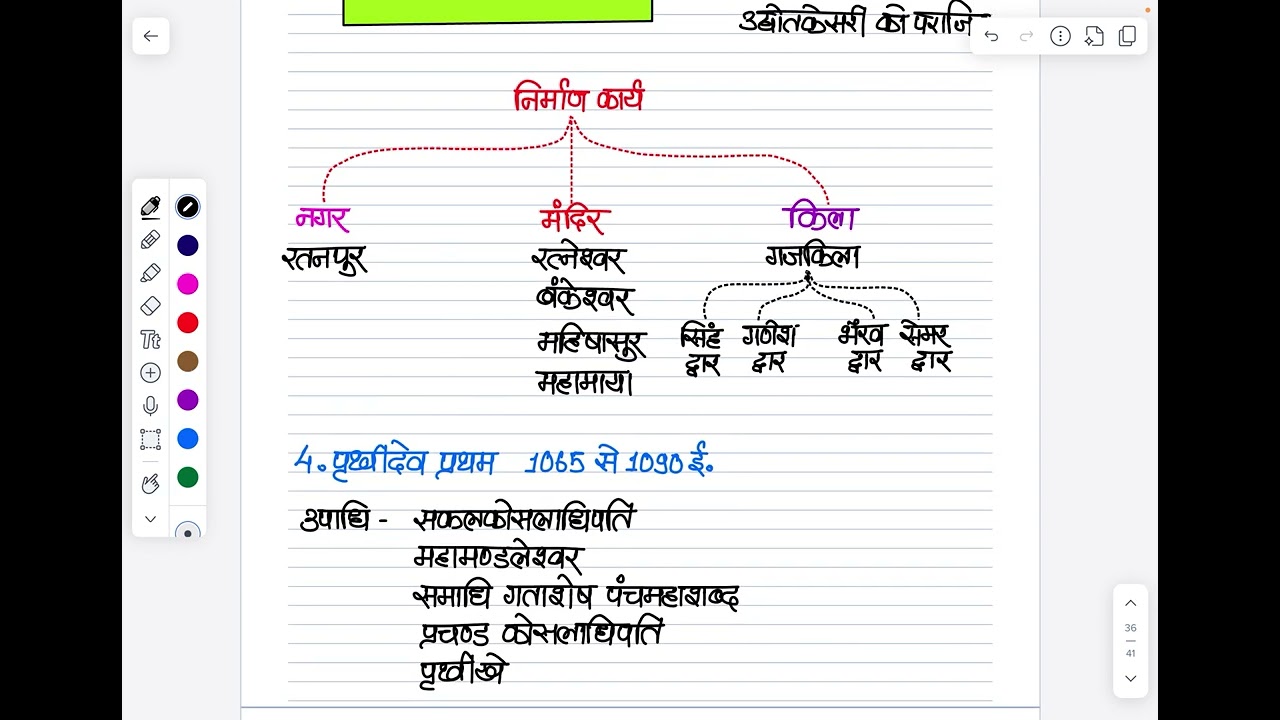 उद्योतकेसरी को पराजि
निर्माण कार्य
नगर मंदिर किला
रतनपुर रत्नेश्वर गजकिला
बंकेश्वर
महिषासुर सिंह गणेश भैरव सेमर
द्वार द्वार द्वार द्वार
महामाया
4. पृथ्वीदेव प्रथम 1065 से 1090 ई.
उपाधि - सकलकोसलाधिपति
महामण्डलेश्वर
समाधि गताशेष पंचमहाशब्द
प्रचण्ड कोसलाधिपति
पृथ्वीखे
Tt
36
41